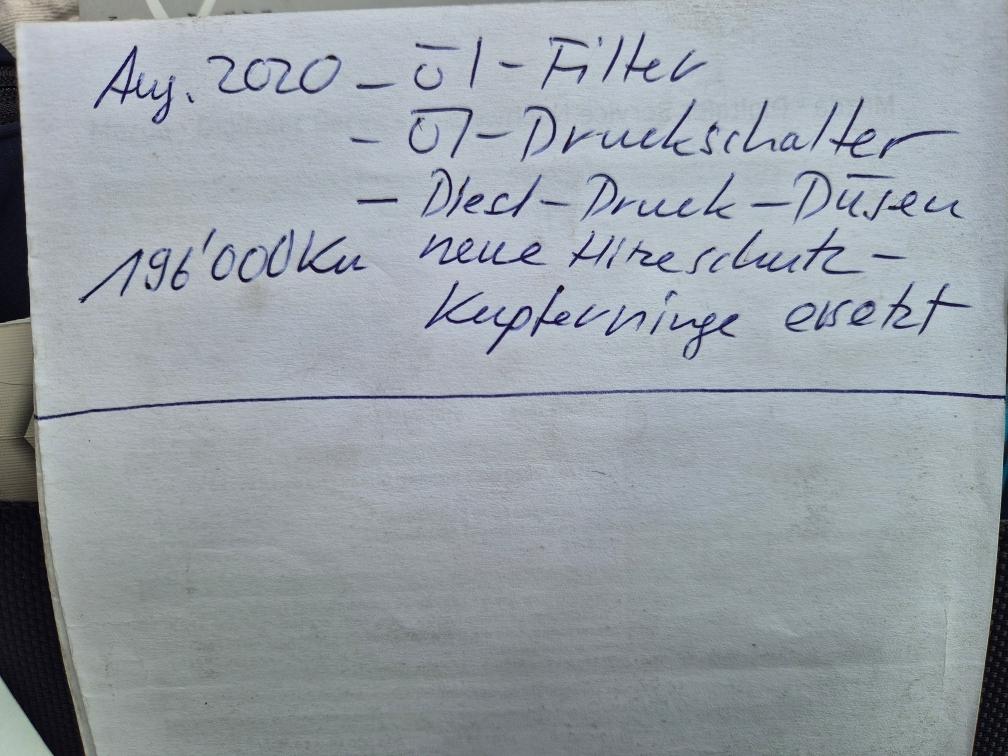 Aug. 2020 – Öl-Filter
– Öl-Druckschalter
– Diesel-Druck-Düsen
196'000Km neue Hitzeschutz-
Kupferringe ersetzt